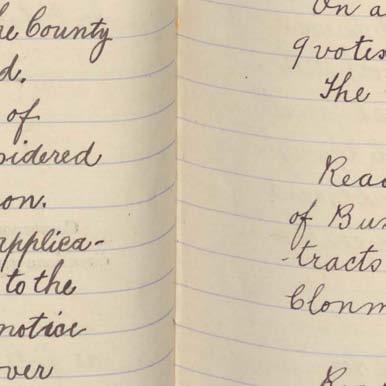 he County
d.
of
sidered
on.
applica-
to the
notice
over
On a
9 votes
The
Read
of Bu
-tracts
Clonm